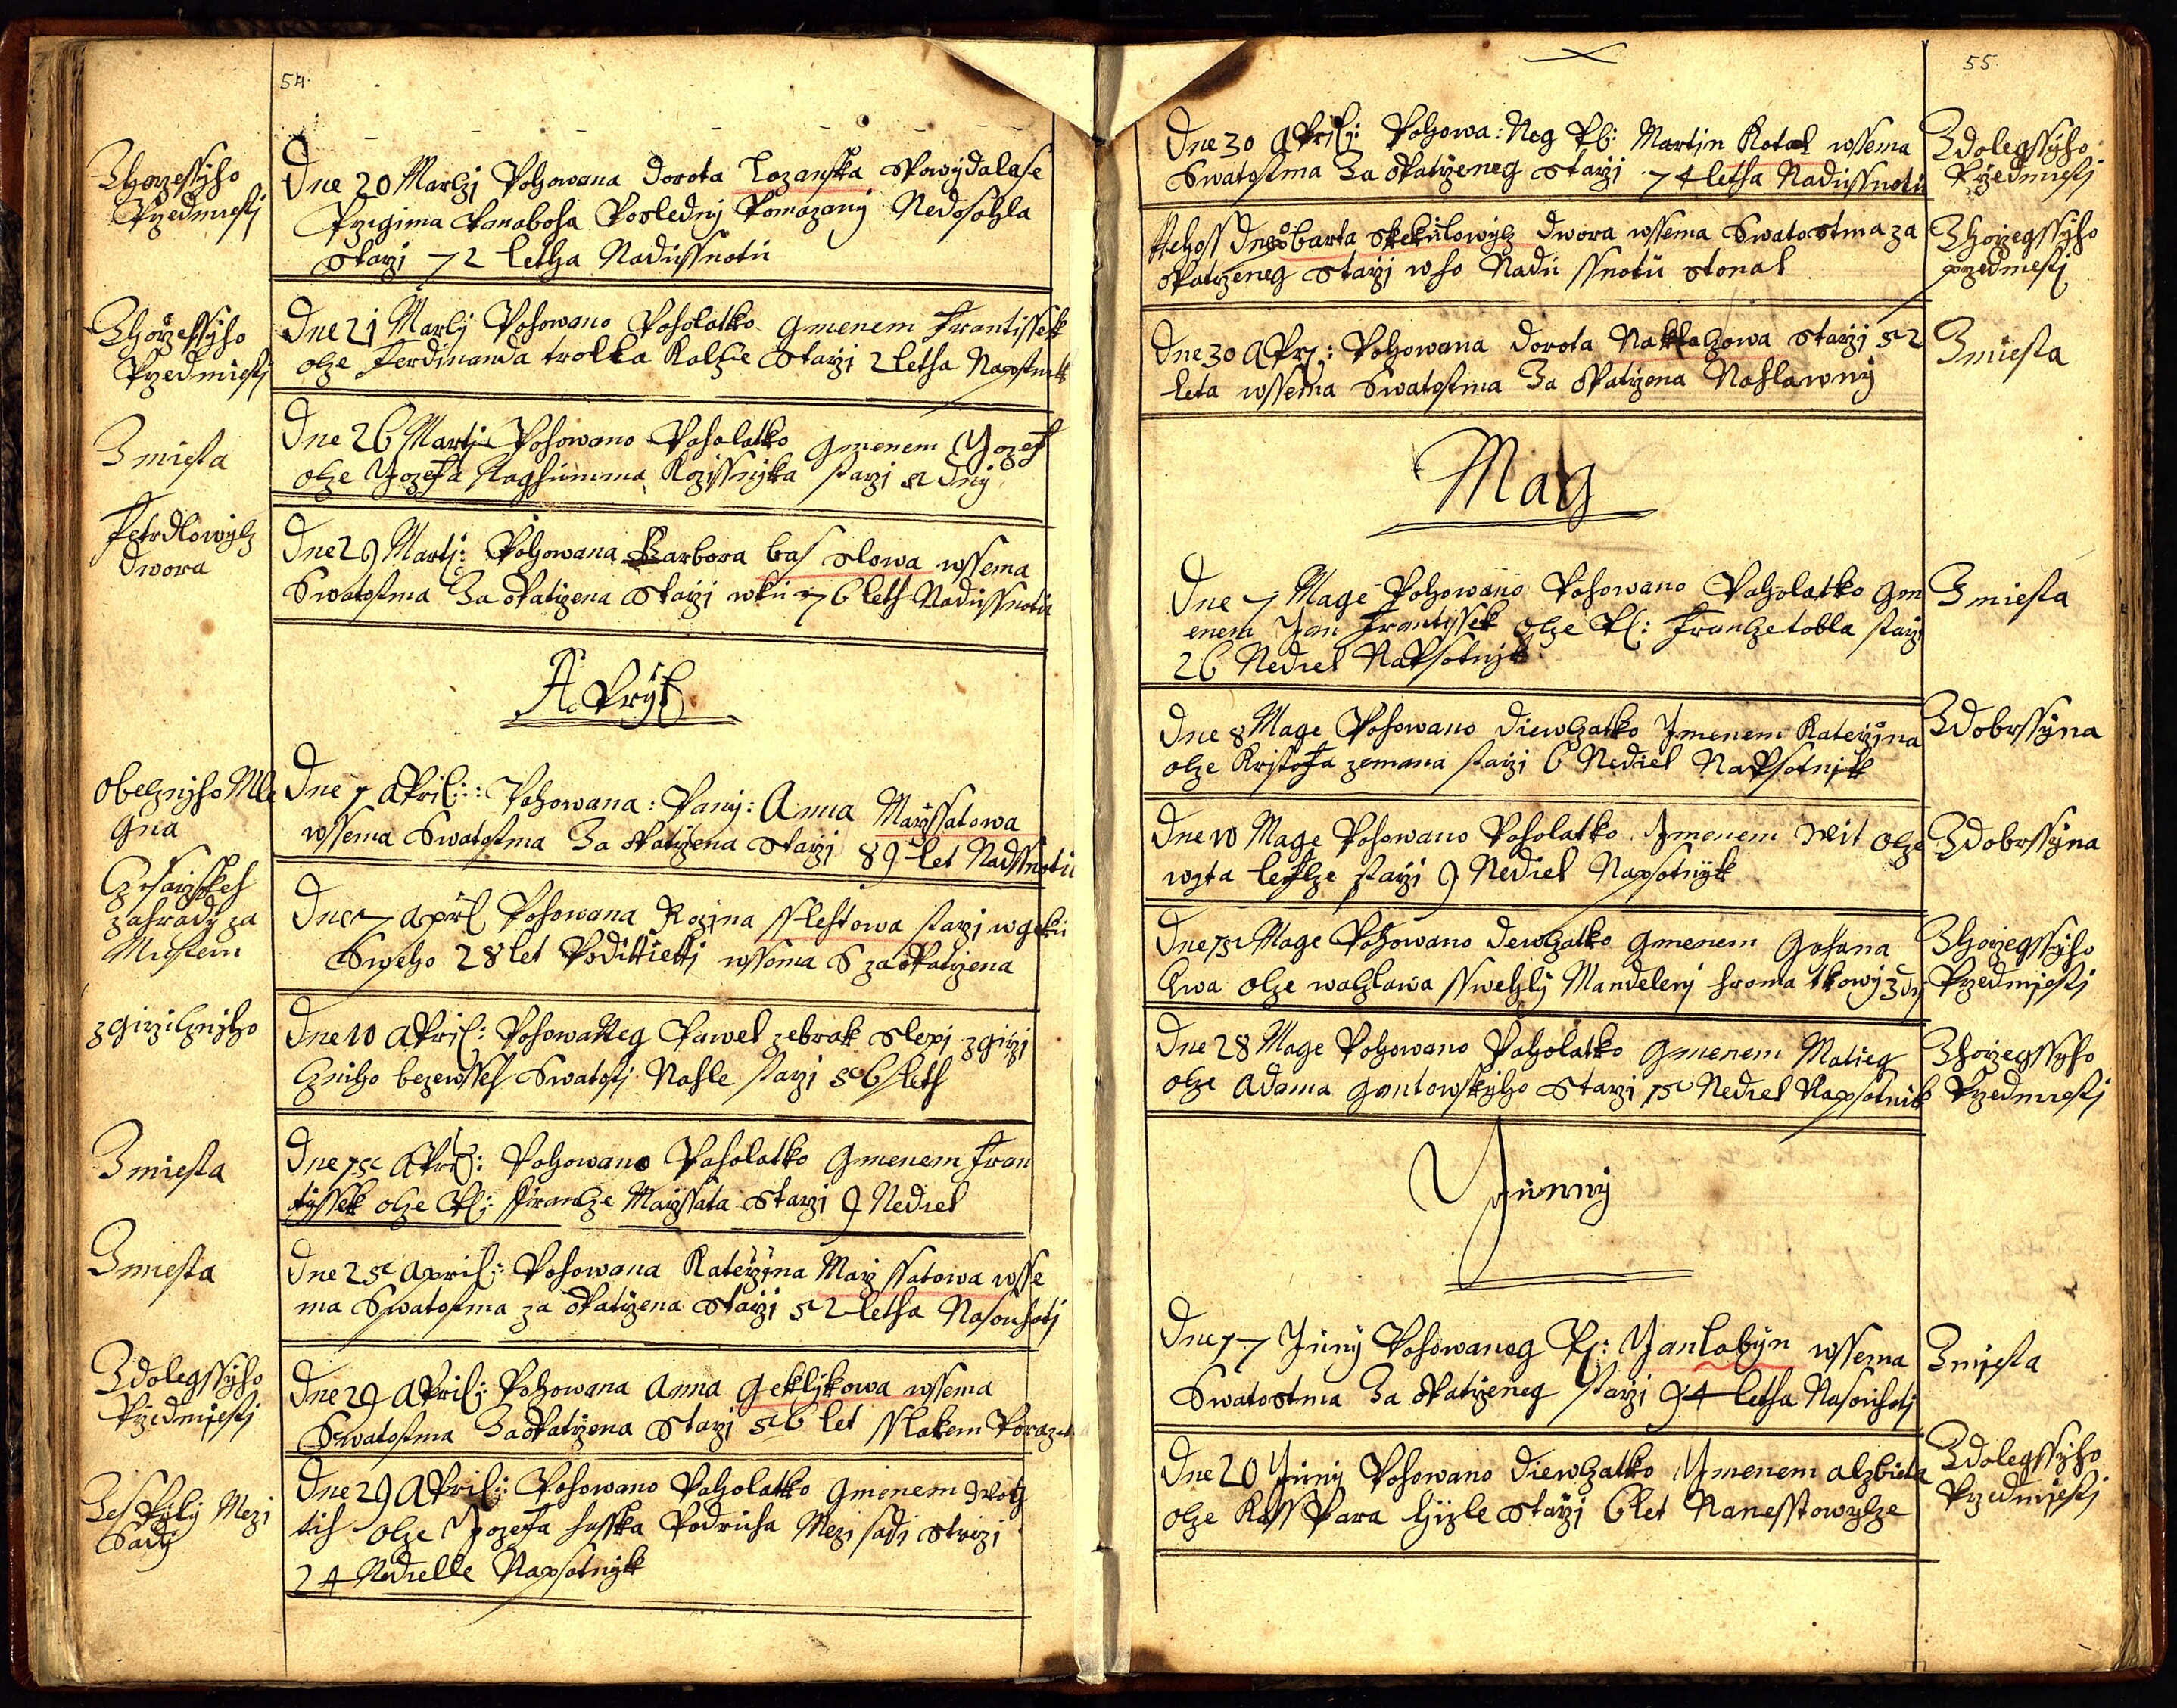 54.
Zhorzessyho
Przedmiesti
Dne 20 Marczj Pochowana Dorota Lozanska spowydalase
Przigima Panaboha Posledny Pomazany Nedosohla
Starzi 72 letha Nadussnotu
Zhorzessyho
Przedmiesti
Dne 21 Martj Pohowano Poholatko Gmenem Frantissek
otze Ferdinanda trolla Starzi 2 letha Napsotnik
Zmiesta
Dne 26 Martj Pohowano Poholatko Gmenem Yozef
otze Yozefa starzi Dny
Petrdlowytz
Dwora
Dne 29 Martj: Pohowana Barbora bas slowa wssema
Swatostma Zaopatrzena Starzi wku 76 leth Nadussnotu
Apryl
obecznyho Mle
gna
Dne 7 April:: Pohowana: Pany: Anna Marzssatowa
wssema Swatostma Zaopatrzena Starzi 89 let Nadssnotu
Czisarzskeh
zahrady za
Miestem
Dne 7 April Pohowana Rozyna sslestowa starzi wgeku
Sweho 28 let Podittietti wssema S zaopatrzena
zgirzicznyho
Dne 10 April: Pohowaneg Pawel zebrak Slepi zgirzi
Czniho bezewsseh Swatosti Nahle starzi 56 leth
Zmiesta
Dne 15 April: Pohowano Poholatko Gmenem Fran
tyssek otze Pl: Frantze Marzssata Starzi 9 Nediel
Zmiesta
Dne 25 April: Pohowana Katerzina Marz ssatowa wsse
ma Swatostma za opatrzena Starzi 52 letha Nasouhotj
Zdolegssyho
Przedmiesti
Dne 29 April: Pohowana Anna Geklikowa wssema
Swatostma Zaopatrzena Starzi 56 let sslakem Poraz
Zes Pyly Mezi
Sady
Dne 29 April: Pohowano Poholatko Gmenem Woty
tih otze Yozefa hasska Podruha Mezi sadi Starzi
24 Nedielle Napsotnyk
55.
Dne 30 Aprily Pohowa: Neg Pl: Martin Kotal wssema
Swatostma Za opatrzeneg Starzi 74 letha Nadussnotu
Zdolegssyho
Przedmiesti
Tehoss Dne barta Skekulowytz Dwora wssema Swatostma za
opatrzeneg Starzi w ho Nadu ssnotu stonal
Zhorzegssyho
przedmiesti
Dne 30 Apr: Pohowana Dorota Starzi 52
leta wssema Swatostma Za opatrzena Nahlawny
Zmiesta
May
Dne 7 Mage Pohowano Pohowano Poholatko gm
enem Jan Frantissek otze Pl: Frantze tobla starzi
26 Nediel Napsotnyk
Zmiesta
Dne 8 Mage Pohowano Diewczatko Jmenem Katerzina
otze Kristofa zemana starzi 6 Nediel Napsotnik
Zdobrssyna
Dne 10 Mage Pohowano Poholatko Jmenem Wit otze
wyta starzi 9 Nediel Napsotnyk
Zdobrssyna
Dne 15 Mage Pohowano Dewczatko gmenem Gohana
Ewa otze watzlawa Mandeleny
Zhorzegssyho
Przedmiesti
Dne 28 Mage Pohowano Poholatko gmenem Matieg
otze Adama Gantowskyho Starzi 15 Nediel Napsotnik
Zhorzegssyho
Przedmiesti
Yunny
Dne 17 Juny Pohowaneg Pl: Yan labyn wssema
Swatostma Za opatrzeneg starzi 94 letha Nasouhotj
Zmiesta
Dne 20 Juny Pohowano Diewczatko Ymenem alzbieta
otze Kass Para starzi 6 let Nanesstowytze
Zdolegssyho
Przedmiesti